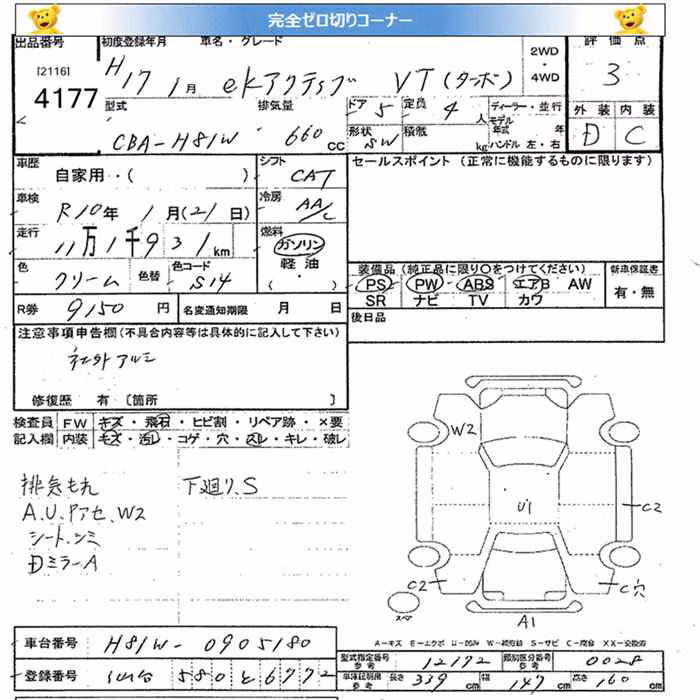 完全ゼロ切りコーナー
出品番号 初度登録年月 車名・グレード 2WD・4WD 評価点
[2116] 4177 H17 1月 ekアクティブ VT (ターボ) 3
型式 排気量 ドア 5 定員 4人 ディーラー・並行 外装 内装
モデル年式 年
CBA-H81W 660cc 形状 SW 積載 kg ハンドル 左・右 D C
車歴 シフト セールスポイント (正常に機能するものに限ります)
自家用・( ) CAT
車検 冷房
R10年 1月(21日) AA/C
走行 燃料
11万1千931km ガソリン
軽油
・( )
色 色替 色コード 装備品(純正品に限り○をつけてください) 新車保証書
クリーム S14 PS PW ABS エアB AW 有・無
SR ナビ TV カワ
R券 9150円 名変通知期限 月 日 後日品
注意事項申告欄(不具合内容等は具体的に記入して下さい)
社外アルミ
修復歴 有 〔箇所
検査員 FW キズ・飛石・ヒビ割・リペア跡・×要
記入欄 内装 キズ・汚レ・コゲ・穴・スレ・キレ・破レ
排気もれ 下廻り、S
A.U.Pアセ、W2
シート、シミ
DミラーA
W2
U1
C2
C2 C穴
スペア
A1
A-キズ E-エクボ U-凹み W-補修跡 S-サビ C-腐食 XX-交換済
車台番号 H81W-0905180
型式指定番号 参考 12172 類別区分番号 参考 0028
登録番号 仙台 580 と 6772
車庫証明用 参考 長さ 339cm 幅 147cm 高さ 160cm